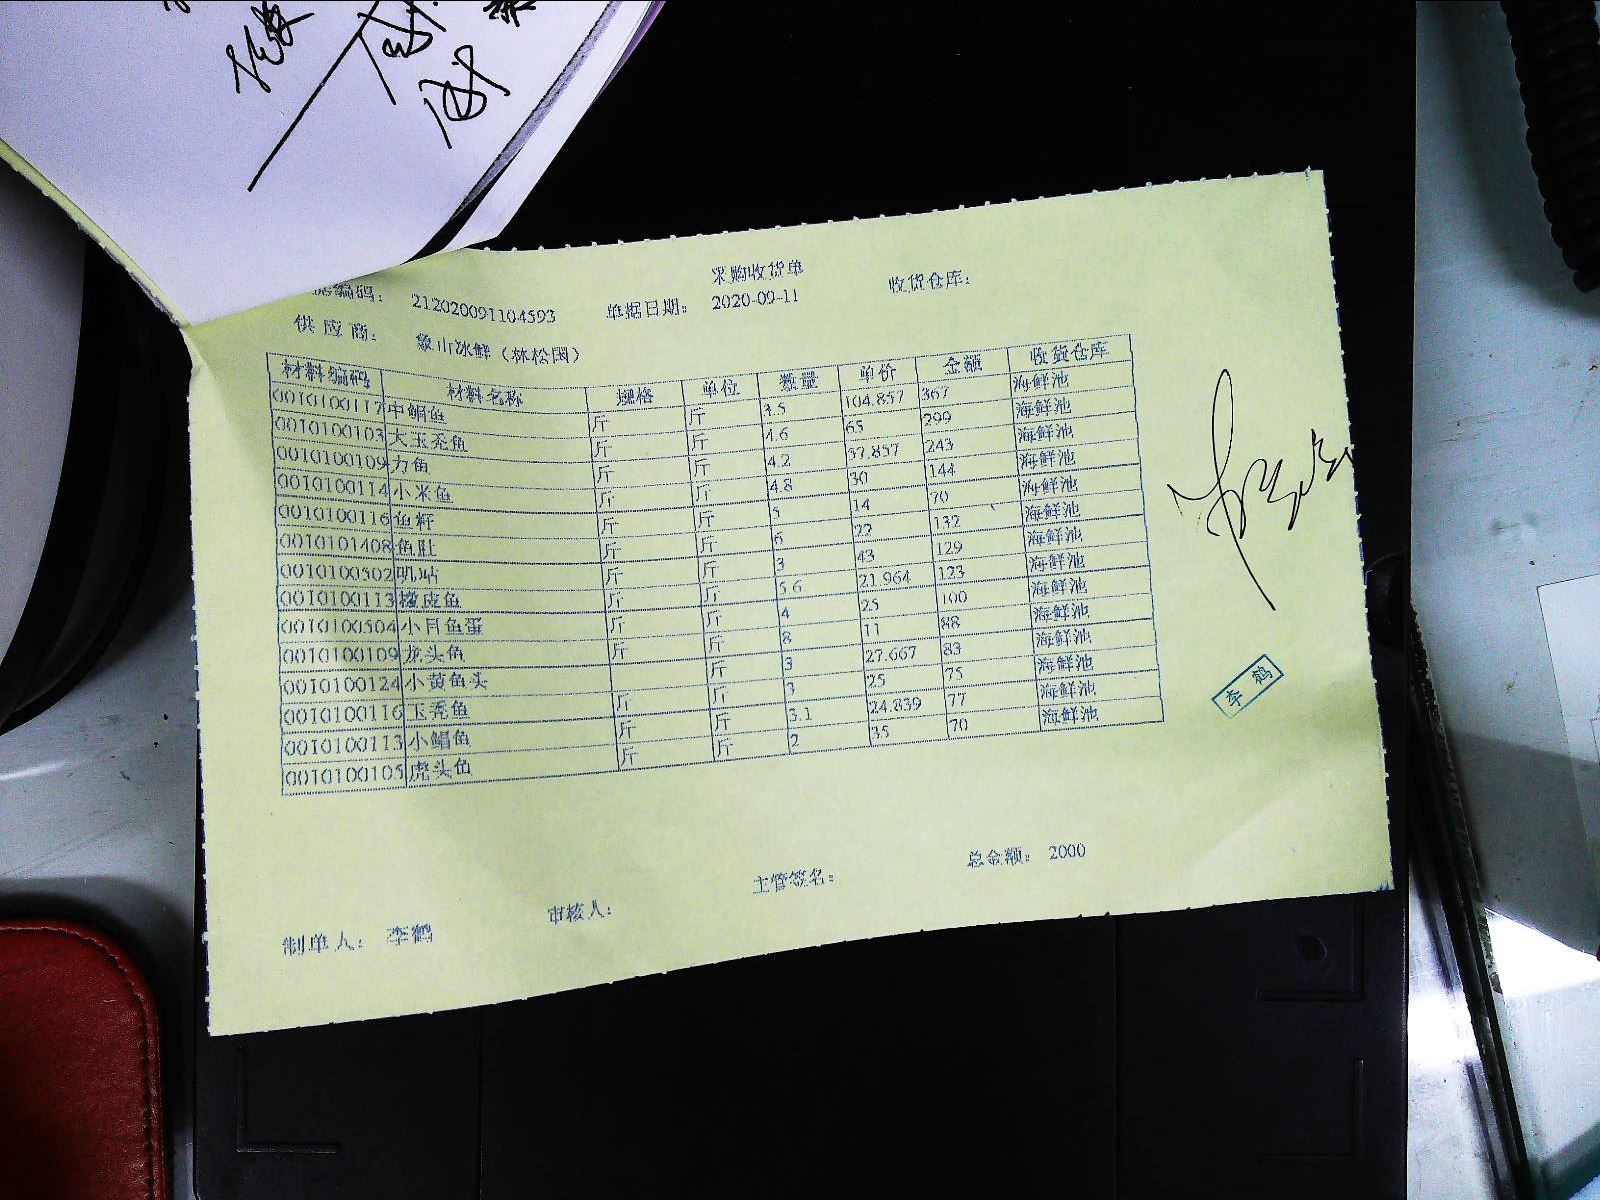 采购收货单
编码： 212020091104593 单据日期： 2020-09-11 收货仓库：
供应商： 象山冰鲜（林松国）
材料编码 材料名称 规格 单位 数量 单价 金额 收货仓库
0010100117 中鲳鱼 斤 斤 3.5 104.857 367 海鲜池
0010100103 大玉秃鱼 斤 斤 4.6 65 299 海鲜池
0010100109 力鱼 斤 斤 4.2 57.857 243 海鲜池
0010100114 小米鱼 斤 斤 4.8 30 144 海鲜池
0010100116 鱼籽 斤 斤 5 14 70 海鲜池
0010101408 鱼肚 斤 斤 6 22 132 海鲜池
0010100302 斤 斤 3 43 129 海鲜池
0010100113 橡皮鱼 斤 斤 5.6 21.964 123 海鲜池
0010100504 小目鱼蛋 斤 斤 4 25 100 海鲜池
0010100109 龙头鱼 斤 斤 8 11 88 海鲜池
0010100124 小黄鱼头 斤 3 27.667 83 海鲜池
0010100116 玉秃鱼 斤 斤 3 25 75 海鲜池
0010100113 小鲳鱼 斤 斤 3.1 24.839 77 海鲜池
0010100105 虎头鱼 斤 斤 2 35 70 海鲜池
李鹤
总金额： 2000
主管签名：
审核人：
制单人： 李鹤